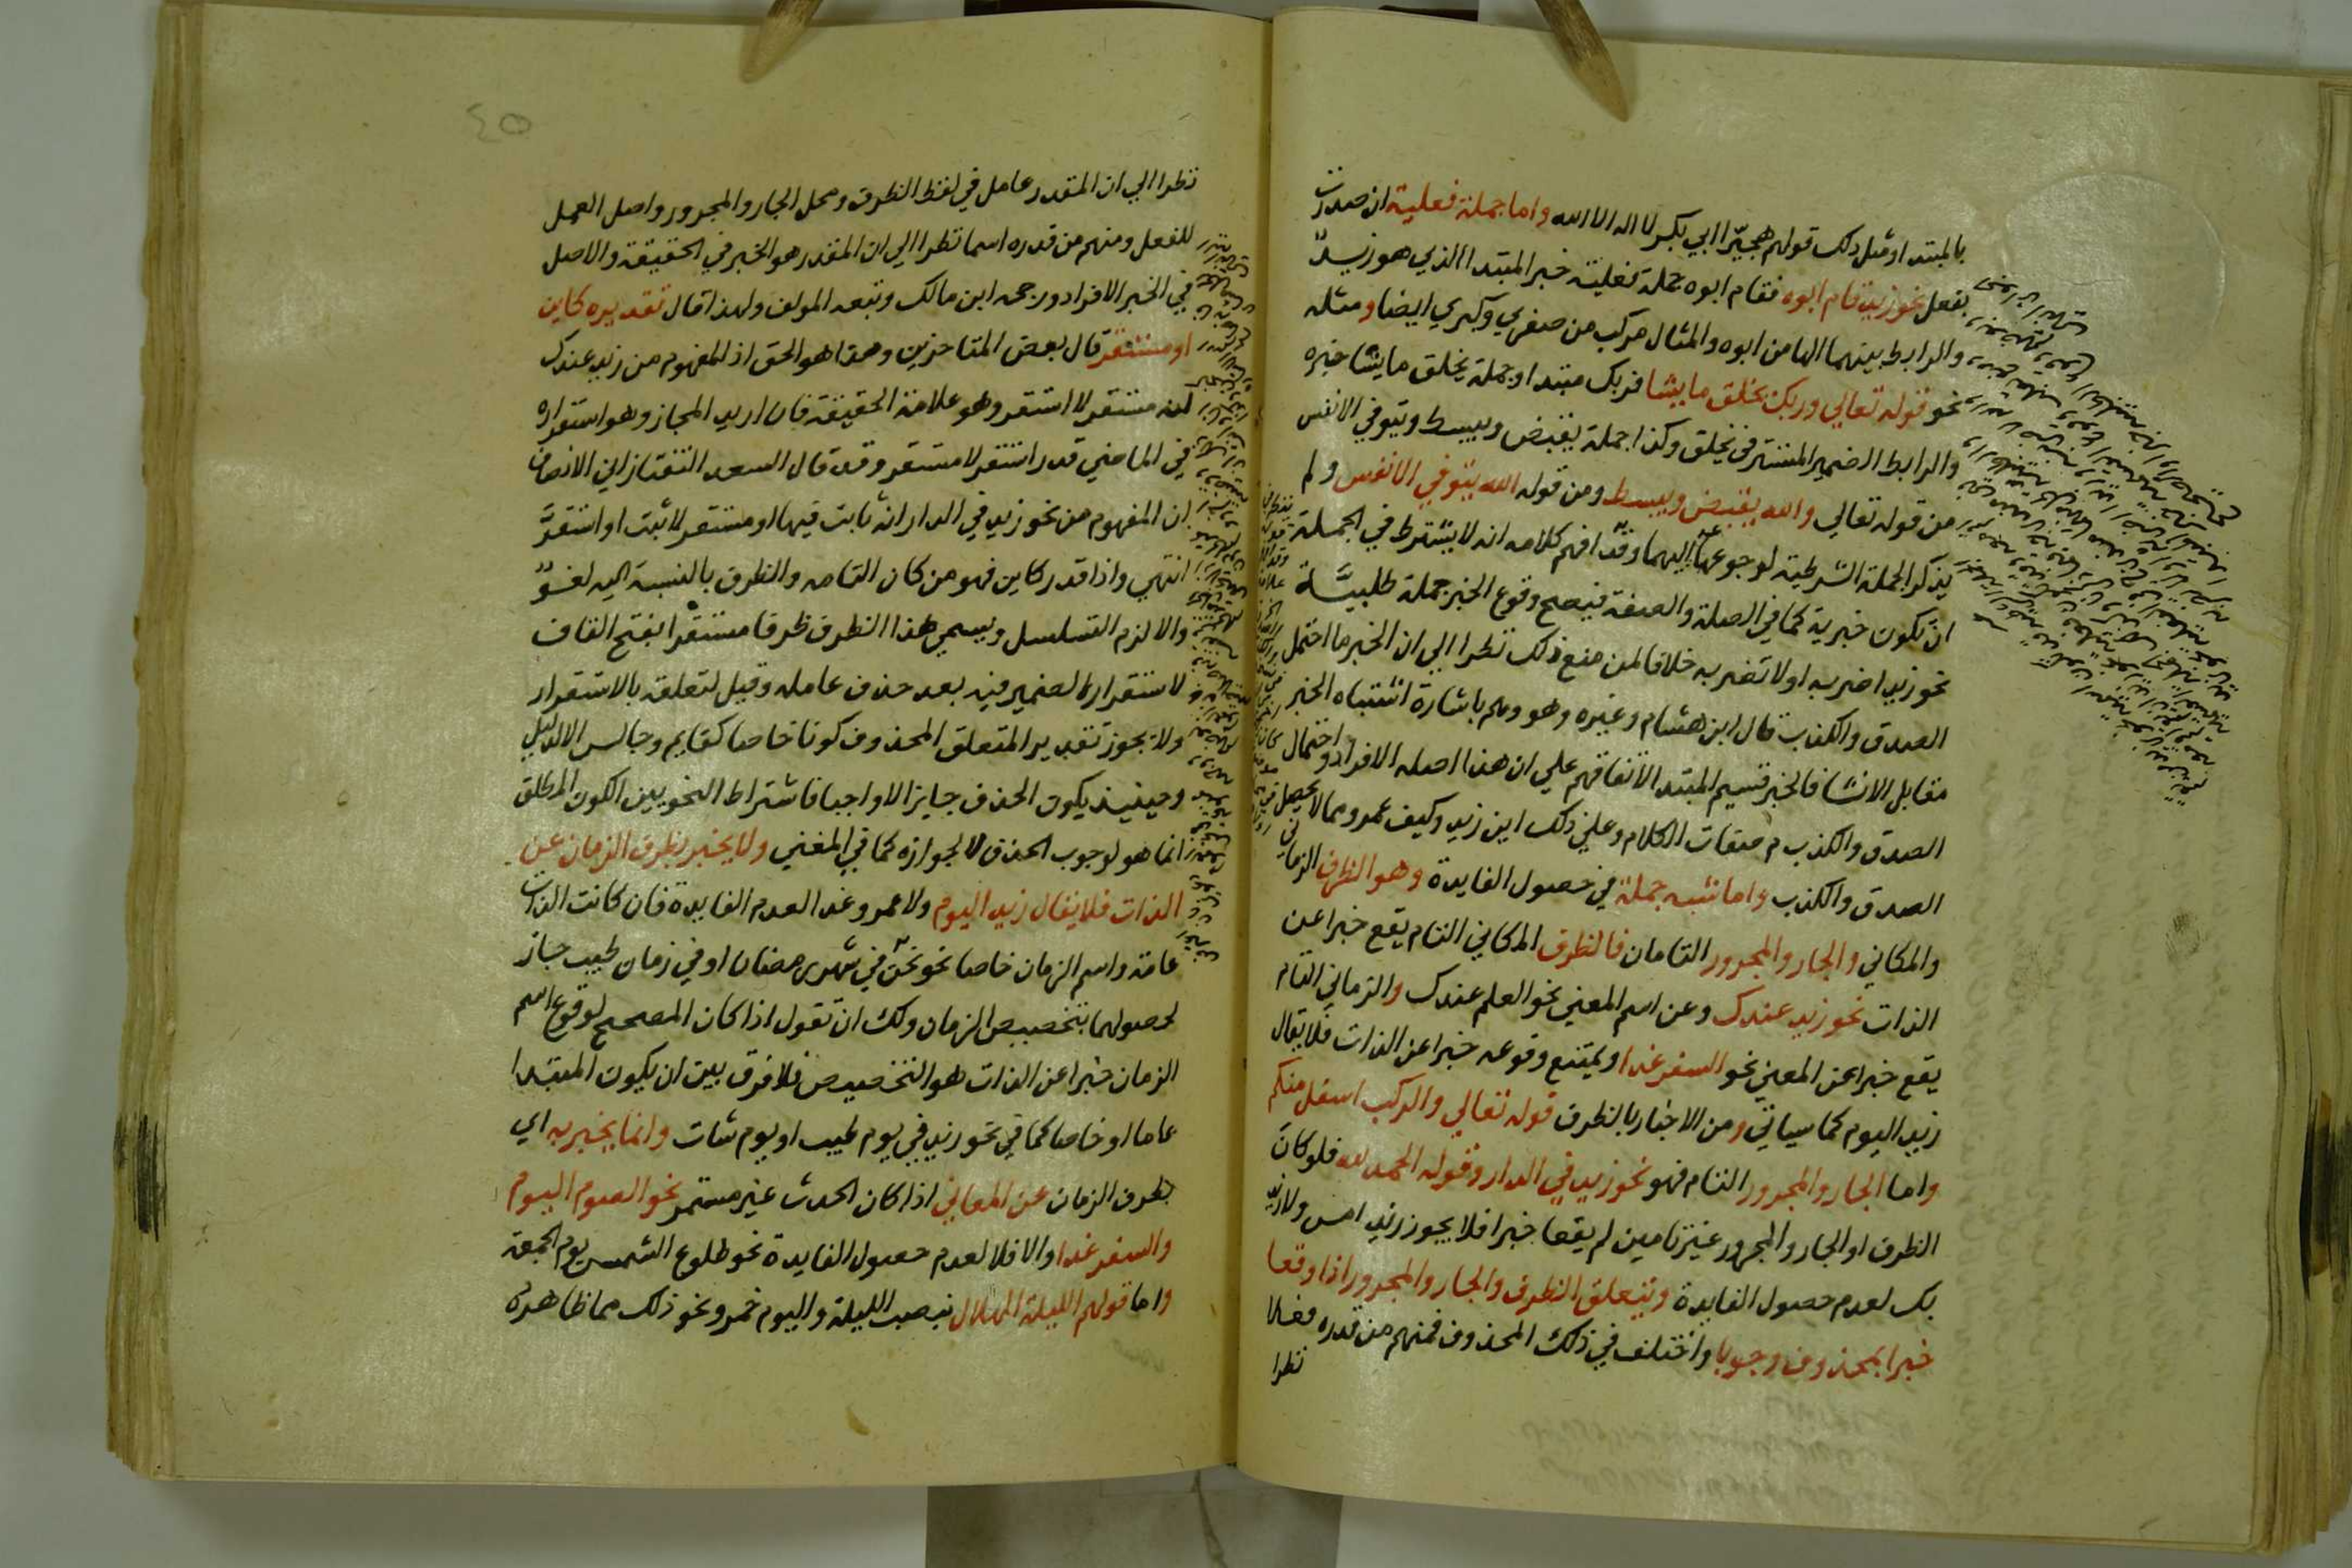 بالمبتدا ومثل ذلك قولهم هجيرا ابي بكر لا اله الا الله واما جملة فعلية ان صدرت
بفعل نحو زيد قام ابوه فقام ابوه جملة فعلية خبر المبتدا الذي هو زيد
والرابط بينهما الها من ابوه والمثال مركب من صغري وكبري ايضا ومثله
نحو قوله تعالي وربك يخلق ما يشا فربك مبتدا وجملة يخلق ما يشا خبره
والرابط الضمير المستتر في يخلق وكذا جملة يقبض ويبسط ويتوفي الانفس
من قوله تعالي والله يقبض ويبسط ومن قوله الله يتوفي الانفس ولم
يذكر الجملة الشرطية لرجوعها اليهما وقد افهم كلامه انه لا يشترط في الجملة
ان تكون خبرية كما في الصلة والصفة فيصح وقوع الخبر جملة طلبية
نحو زيد اضربه او لا تضربه خلافا لمن منع ذلك نظرا الي ان الخبر ما احتمل
الصدق والكذب قال ابن هشام وغيره وهو وهم باشارة اشتباه الخبر
مقابل الانشا فالخبر قسيم المبتدا لاتفاقهم علي ان هذا اصله الافراد واحتمال
الصدق والكذب من صفات الكلام وعلي ذلك اين زيد وكيف عمرو مما لا يحتمل
الصدق والكذب واما شبه جملة في حصول الفايدة وهو الظرف الزماني
والمكاني والجار والمجرور التامان فالظرف المكاني التام يقع خبرا عن
الذات نحو زيد عندك وعن اسم المعني نحو العلم عندك والزماني التام
يقع خبرا عن المعني نحو السفر غدا ويمتنع وقوعه خبرا عن الذات فلا يقال
زيد اليوم كما سياتي ومن الاخبار بالظرف قوله تعالي والركب اسفل منكم
واما الجار والمجرور التام فهو نحو زيد في الدار وقوله الحمد لله فلو كان
الظرف او الجار والمجرور غير تامين لم يقعا خبرا فلا يجوز زيد امس ولا زيد
بك لعدم حصول الفايدة ويتعلق الظرف والجار والمجرور اذا وقعا
خبرا بمحذوف وجوبا واختلف في ذلك المحذوف فمنهم من قدره فعلا
نظرا
٤٥
نظرا الي ان المقدر عامل في لفظ الظرف ومحل الجار والمجرور واصل العمل
للفعل ومنهم من قدره اسما نظرا الي ان المقدر هو الخبر في الحقيقة والاصل
في الخبر الافراد ورجحه ابن مالك وتبعه المولف ولهذا قال تقديره كاين
او مستقر قال بعض المتاخرين وهذا هو الحق اذ المفهوم من زيد عندك
انه مستقر لا استقر وهو علامة الحقيقة فان اريد المجاز وهو استقراره
في الماضي قدر استقر لا مستقر وقد قال السعد التفتازاني الانصاف
ان المفهوم من نحو زيد في الدار انه ثابت فيها او مستقر لا ثبت او استقر
انتهي واذا قدر كاين فهو من كان التامه والظرف بالنسبة اليه لغو
والا لزم التسلسل ويسمي هذا الظرف ظرفا مستقرا بفتح القاف
لاستقرار الضمير فيه بعد حذف عامله وقيل لتعلقه بالاستقرار
ولا يجوز تقدير المتعلق المحذوف كونا خاصا كقايم وجالس الا لدليل
وحينيذ يكون الحذف جايزا لا واجبا فاشتراط النحويين الكون المطلق
انما هو لوجوب الحذف لا لجوازه كما في المغني ولا يخبر بظرف الزمان عن
الذات فلا يقال زيد اليوم ولا عمرو غدا لعدم الفايدة فان كانت الذات
عامة واسم الزمان خاصا نحو نحن في شهر رمضان او في زمان طيب جاز
لحصولها بتخصيص الزمان ولك ان تقول اذا كان المصحح لوقوع اسم
الزمان خبرا عن الذات هو التخصيص فلا فرق بين ان يكون المبتدا
عاما او خاصا كما في نحو زيد في يوم طيب او يوم شات وانما يخبر به اي
بظرف الزمان عن المعاني اذا كان الحدث غير مستمر نحو الصوم اليوم
والسفر غدا والا فلا لعدم حصول الفايدة نحو طلوع الشمس يوم الجمعة
واما قولهم الليلة الهلال بنصب الليلة واليوم خمر ونحو ذلك مما ظاهره